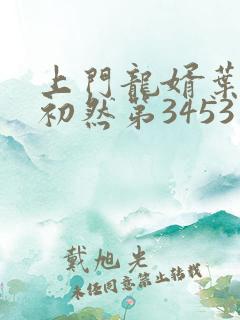 上門龍婿葉
初然第3453
戴旭光
未经同意禁止转载